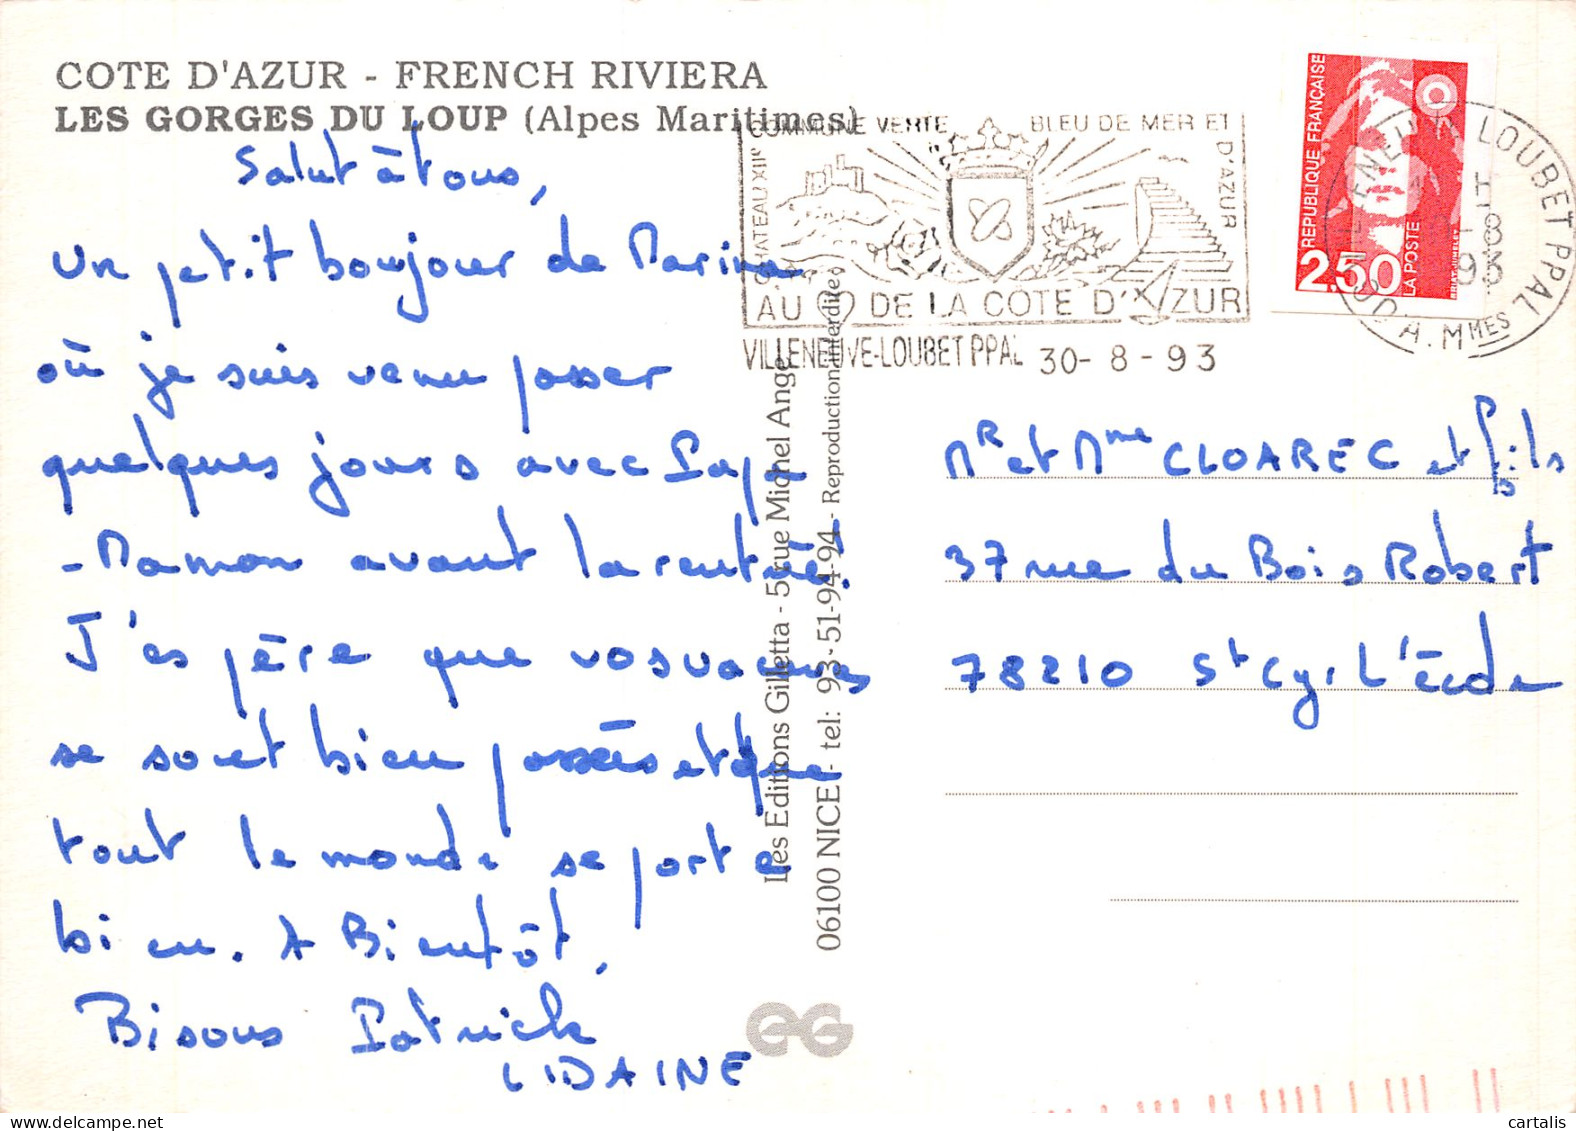 COTE D'AZUR - FRENCH RIVIERA
LES GORGES DU LOUP (Alpes Maritimes)
Salut à tous,
Un petit bonjour de Marina
où je suis venu passer
quelques jours avec Papa
- Maman avant la rentrée!
J'espère que vos vacances
se sont bien passées et que
tout le monde se porte
bien. A Bientôt,
Bisous Patrick
Les Editions Gilletta - 5 rue Michel Ange
06100 NICE - tel: 93-51-94-94 - Reproduction interdite
COMMUNE VERTE BLEU DE MER ET
D'AZUR
CHATEAU XIIe
AU DE LA COTE D'AZUR
VILLENEUVE-LOUBET PPAL 30-8-93
REPUBLIQUE FRANÇAISE
2,50
LA POSTE
VILLENEUVE LOUBET PPAL
H
8
93
A. MMES
Mr et Mme CLOAREC et fils
37 rue du Bois Robert
78210 St Cyr L'École
GG
cartalis